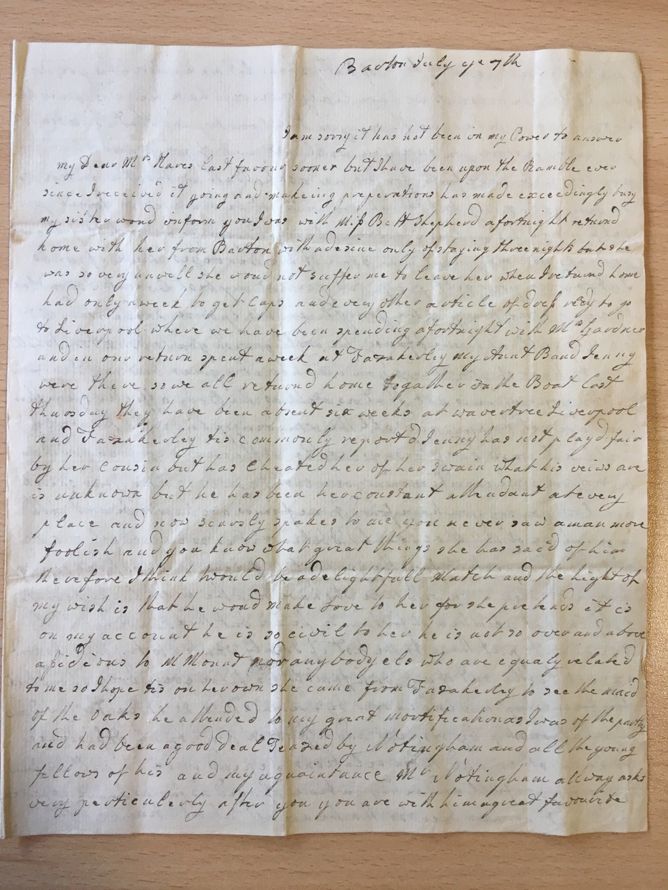 Barton July ye 7th
I am sorry it has not been in my Power to answer
my Dear Mrs Hares last favour sooner but I have been upon the Ramble ever
since I received it going and makeing preperations has made exceedingly busy
my sister woud enform you I was with Miss Bett Shepherd a fortnight returnd
home with her from Barton with a desine only of staying three nights but she
was so very unwell she woud not suffer me to leave her when I returnd home
had only a week to get Caps and every other article of dress redy to go
to Liverpool where we have been spending a fortnight with Mrs Gardner
and in our return spent a week at Fazakerley my Aunt B and Jenny
were there so we all returnd home together in the Boat last
thursday they have been absent six weeks at wavertree Liverpool
and Fazakerley tis commonly reportd Jenny has not playd fair
by her Cousin but has Cheated her of her swain what his veiws are
is unknown but he has been her constant attendant at every
place and now scarsly speakes to me you never saw a man more
foolish and you know what great things she has said of him
therefore I think woud be a delightfull Match and the hight of
my wish is that he woud make love to her for she pretends it is
on my account he is so civil to her he is not so over and above
asidious to M Mount nor any body els who are equaly related
to me so I hope tis on her own she came from Fazakerley to see the maid
of the Oaks he attended to my great mortification as I was of the party
and had been a good deal Teazed by Notingham and all the young
fellows of his and my aquaintance Mr Notingham allway asks
very perticulerly after you you are with him a great favourite